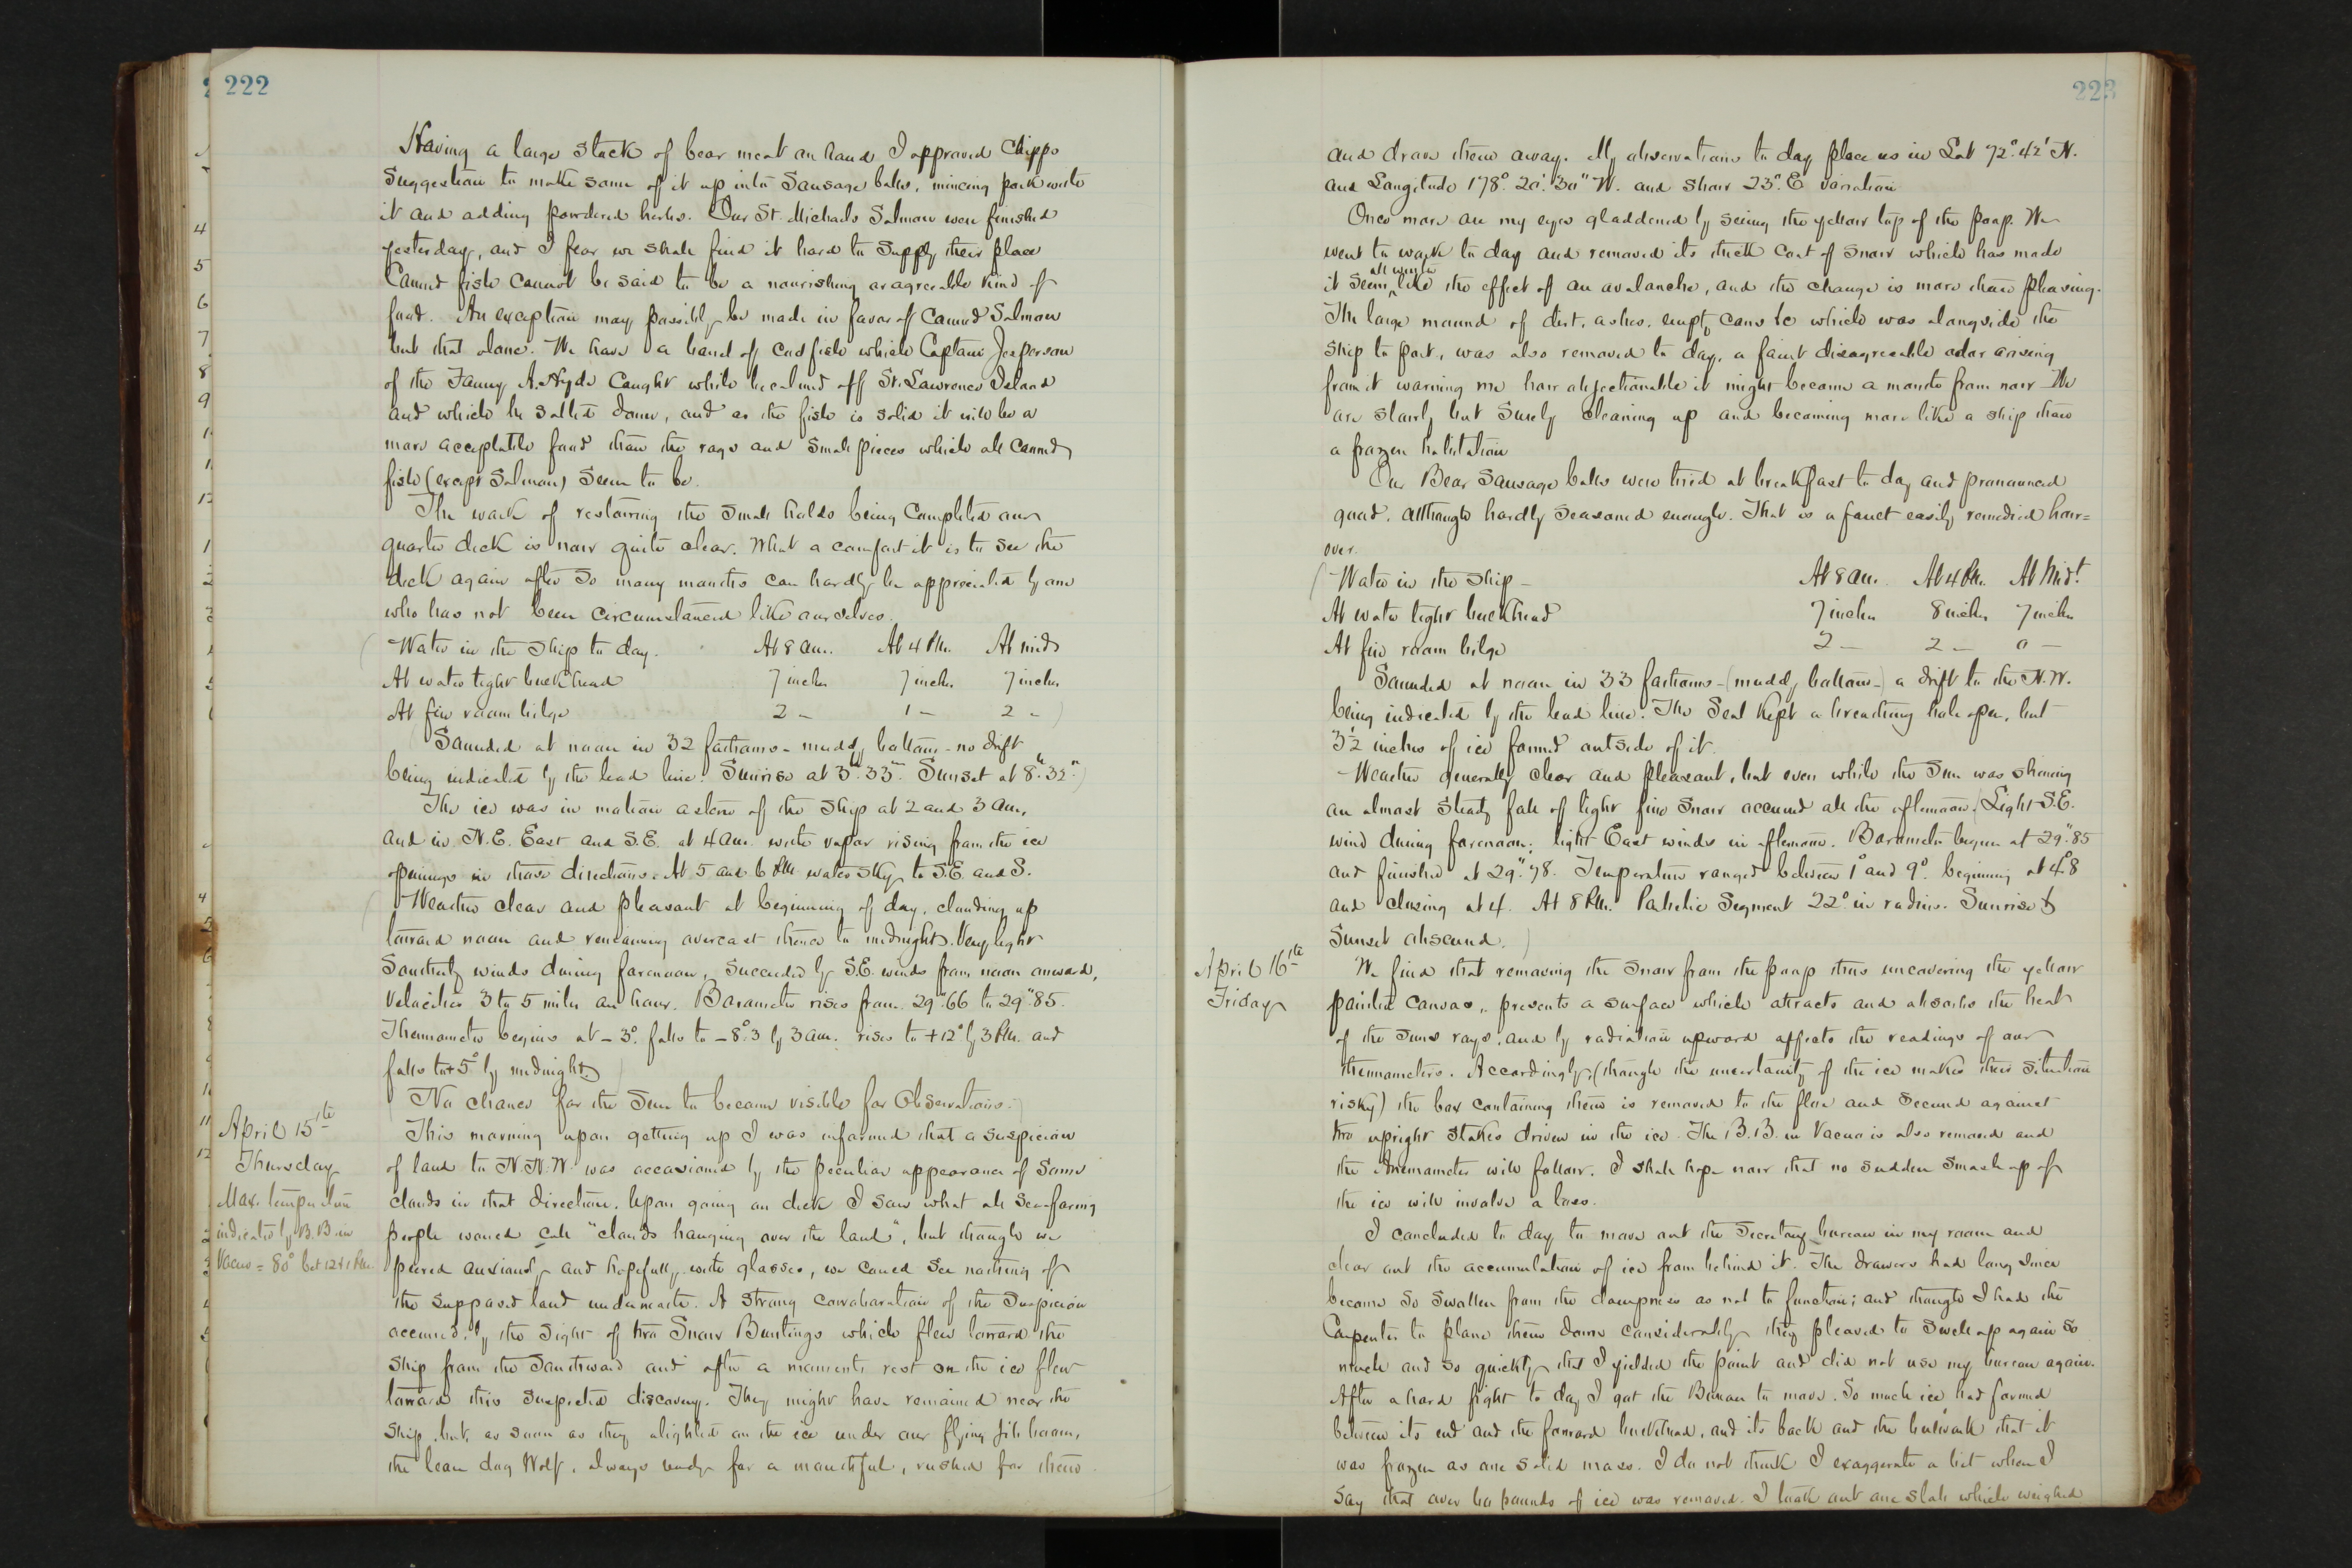 222
Having a large stock of bear meat on hand I approved Chipps
suggestion to make some of it up into Sausage balls, mincing pork with
it and adding powdered herbs. Our St. Michaels Salmon were finished
yesterday, and I fear we shall find it hard to supply their place
Canned fish cannot be said to be a nourishing or agreeable kind of
food. An exception may possibly be made in favor of Canned Salmon
but that alone. We have a barrel of codfish which Captain Jesperson
of the Fanny A. Hyde caught while becalmed off St. Lawrence Island
and which he salted down, and as the fish is solid it will be a
more acceptable food than the rags and small pieces which all canned
fish (except Salmon) seem to be.
The work of restowing the small holds being completed our
quarter deck is now quite clear. What a comfort it is to see the
deck again after so many months can hardly be appreciated by one
who has not been circumstanced like ourselves.
(Water in the ship to day. At 8 am. At 4 PM. At mid
At water tight bulkhead 7 inches 7 inches 7 inches
At fire room bilge 2 " 1 " 2 ")
Sounded at noon in 32 fathoms - muddy bottom - no drift
being indicated by the lead line. Sunrise at 3h. 33m. Sunset at 8h. 32m.)
The ice was in motion astern of the ship at 2 and 3 am,
and in N.E. East and S.E. at 4 am. with vapor rising from the ice
openings in those directions. At 5 and 6 PM. water sky to S.E. and S.
(Weather clear and pleasant at beginning of day, clouding up
toward noon and remaining overcast thence to midnight. Very light
Southerly winds during forenoon, succeeded by S.E. winds from noon onward,
velocities 3 to 5 miles an hour. Barometer rises from 29".66 to 29".85.
Thermometer begins at -3°. falls to -8°.3 by 3 am. rises to +12° by 3 PM. and
falls to +5° by midnight.)
(No chance for the Sun to become visible for Observations.)
April 15th
Thursday
Max. temperature
indicated by B.B. in
Vacuo = 80° bet 12 & 1 PM.
This morning upon getting up I was informed that a suspicion
of land to N.N.W. was occasioned by the peculiar appearance of some
clouds in that direction. Upon going on deck I saw what all sea-faring
people would call "clouds hanging over the land", but though we
peered anxiously and hopefully with glasses, we could see nothing of
the supposed land underneath. A strong corroboration of the suspicion
occurred, by the sight of two Snow Buntings which flew toward the
ship from the Southward and after a moments rest on the ice flew
toward this suspected discovery. They might have remained near the
ship but, as soon as they alighted on the ice under our flying jib boom,
the lean dog Wolf, always ready for a mouthful, rushed for them
223
and drove them away. My observations to day place us in Lat 72°. 42' N.
and Longitude 178°. 20'. 30" W. and show 23°. E variation
Once more are my eyes gladdened by seeing the yellow top of the poop. We
went to work to day and removed its thick coat of snow which has made
it seem all winter like the effect of an avalanche, and the change is more than pleasing.
The large mound of dirt, ashes, empty cans &c which was alongside the
ship to port, was also removed to day, a faint disagreeable odor arising
from it warning me how objectionable it might become a month from now. We
are slowly but surely cleaning up and becoming more like a ship than
a frozen habitation
Our Bear Sausage balls were tried at breakfast to day and pronounced
good, although hardly seasoned enough. That is a fault easily remedied how=
over.
(Water in the ship - At 8 am. At 4 PM. At Midt.
At water tight bulkhead 7 inches 8 inches 7 inches
At fire room bilge 2 — 2 — 0 —
Sounded at noon in 33 fathoms - (muddy bottom -) a drift to the N.W.
being indicated by the lead line. The Seal kept a breathing hole open, but
3½ inches of ice formed outside of it.
Weather generally clear and pleasant, but even while the Sun was shining
an almost steady fall of light fine snow occurred all the afternoon. (Light S.E.
wind during forenoon; light East winds in afternoon. Barometer began at 29".85
and finished at 29".78. Temperature ranged between 1° and 9°. beginning at 4°.8
and closing at 4. At 8 PM. Parhelic Segment 22° in radius. Sunrise &
Sunset obscured.)
April 16th
Friday
We find that removing the snow from the poop thus uncovering the yellow
painted canvas, presents a surface which attracts and absorbs the heat
of the Suns rays, and by radiation upward affects the readings of our
thermometers. Accordingly, (though the uncertainty of the ice makes their situation
risky) the box containing them is removed to the floe and secured against
two upright stakes driven in the ice. The B.B. in Vacuo is also removed and
the Anemometer will follow. I shall hope now that no sudden smash up of
the ice will involve a loss.
I concluded to day to move out the Secretary bureau in my room and
clear out the accumulation of ice from behind it. The drawers had long since
become so swollen from the dampness as not to function; and though I had the
Carpenter to plane them down considerably they pleased to swell up again so
much and so quickly that I yielded the point and did not use my bureau again.
After a hard fight to day I got the Bureau to move. So much ice had formed
between its end and the forward bulkhead, and its back and the bulwark that it
was frozen as one solid mass. I do not think I exaggerate a bit when I
say that over pounds of ice was removed. I took out one slab which weighed